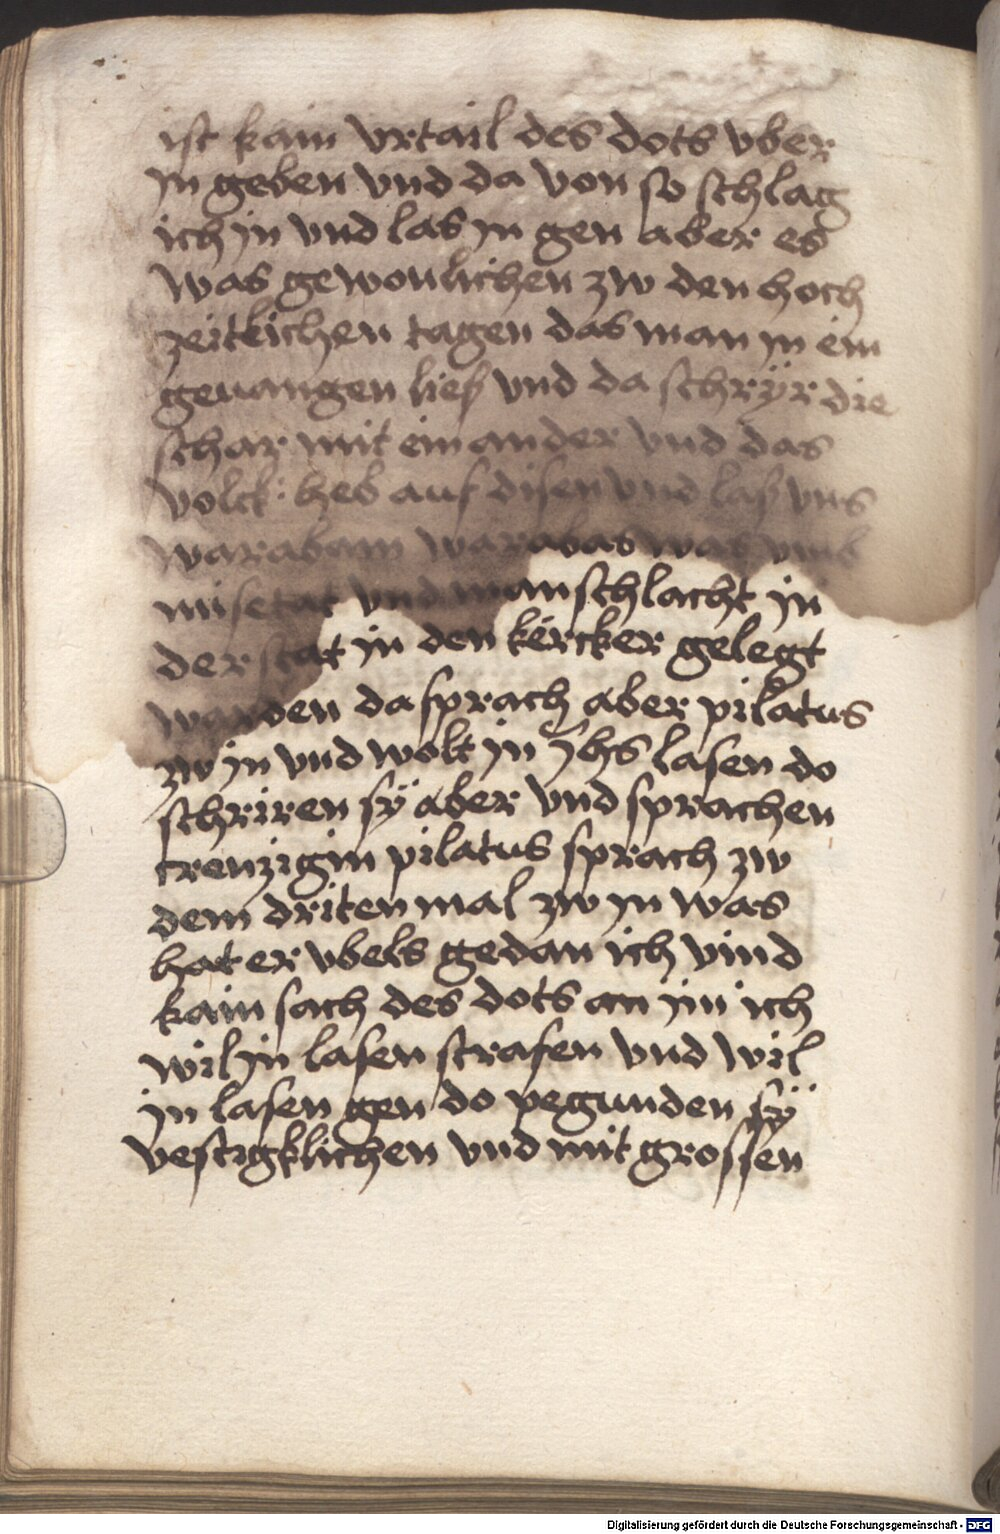 ist kain vrtail des dots vber
in geben vnd da von so schlag
ich in vnd las in gen aber es
was gewonlichen zw den hoch
zeitlichen tagen das man in ein
geuangen ließ vnd da schryͤr die
schar mit einander vnd das
volck heb auf disen vnd laß vns
warabam warabas was vmb
misetat vnd manschlacht in
der stat in den kercker gelegt
warden da sprach aber pilatus
zw in vnd wolt in Jhs lasen do
schriren sÿ aber vnd sprachen
crenzigin pilatus sprach zw
dem driten mal zw in was
hat er vbels gedan ich vind
kain sach des dots an im ich
wil in lasen strafen vnd wil
in lasen gen do pegunden sÿ
vestigklichen vnd mit grossen
Digitalisierung gefördert durch die Deutsche Forschungsgemeinschaft - DFG